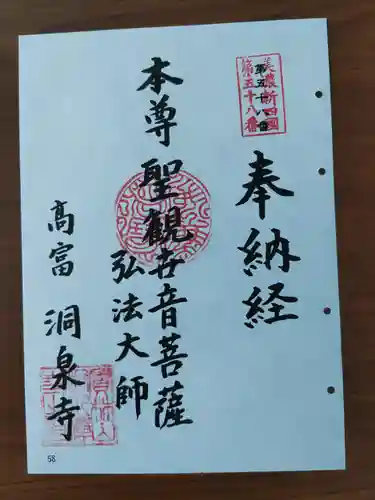 美濃新四國
第五十八番
奉納経
本尊聖観世音菩薩
弘法大師
高富 洞泉寺
58